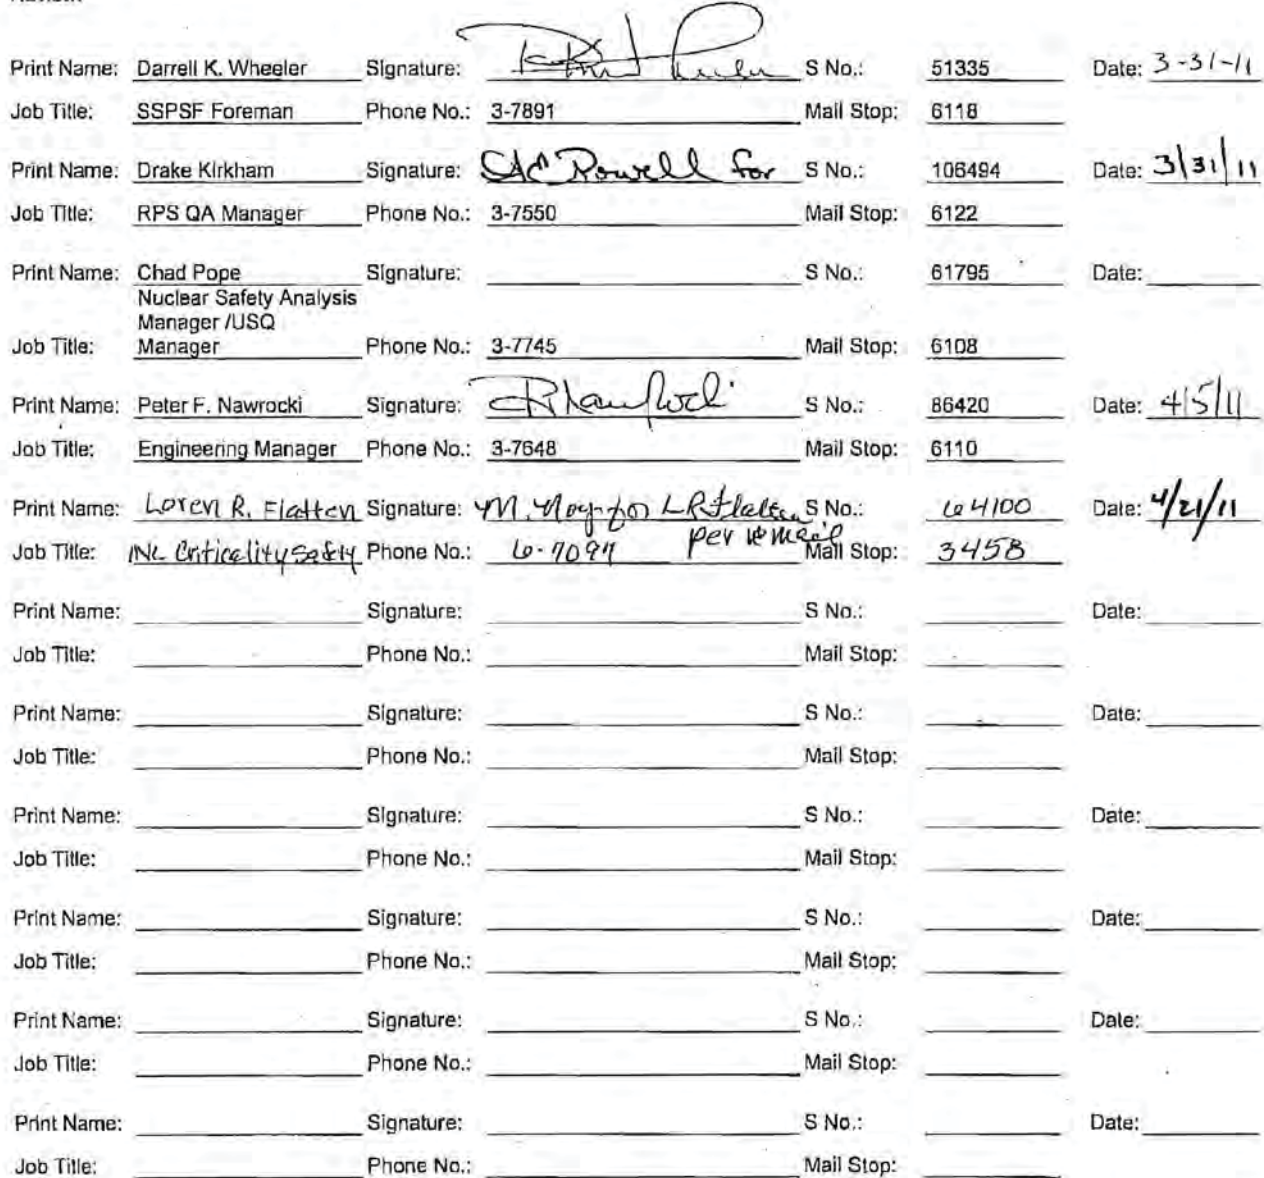 Print Name: Darrell K. Wheeler Signature: S No.: 51335 Date: 3-31-11
Job Title: SSPSF Foreman Phone No.: 3-7891 Mail Stop: 6118
Print Name: Drake Kirkham Signature: Rowell for S No.: 106494 Date: 3/31/11
Job Title: RPS QA Manager Phone No.: 3-7550 Mail Stop: 6122
Print Name: Chad Pope Signature: S No.: 61795 Date:
Nuclear Safety Analysis
Manager /USQ
Job Title: Manager Phone No.: 3-7745 Mail Stop: 6108
Print Name: Peter F. Nawrocki Signature: S No.: 86420 Date: 4/5/11
Job Title: Engineering Manager Phone No.: 3-7648 Mail Stop: 6110
Print Name: Loren R. Flatten Signature: M. for LR Flatten S No.: 64100 Date: 4/21/11
per
Job Title: INL Criticality Safety Phone No.: Mail Stop: 3458
Print Name: Signature: S No.: Date:
Job Title: Phone No.: Mail Stop:
Print Name: Signature: S No.: Date:
Job Title: Phone No.: Mail Stop:
Print Name: Signature: S No.: Date:
Job Title: Phone No.: Mail Stop:
Print Name: Signature: S No.: Date:
Job Title: Phone No.: Mail Stop:
Print Name: Signature: S No.: Date:
Job Title: Phone No.: Mail Stop:
Print Name: Signature: S No.: Date:
Job Title: Phone No.: Mail Stop: